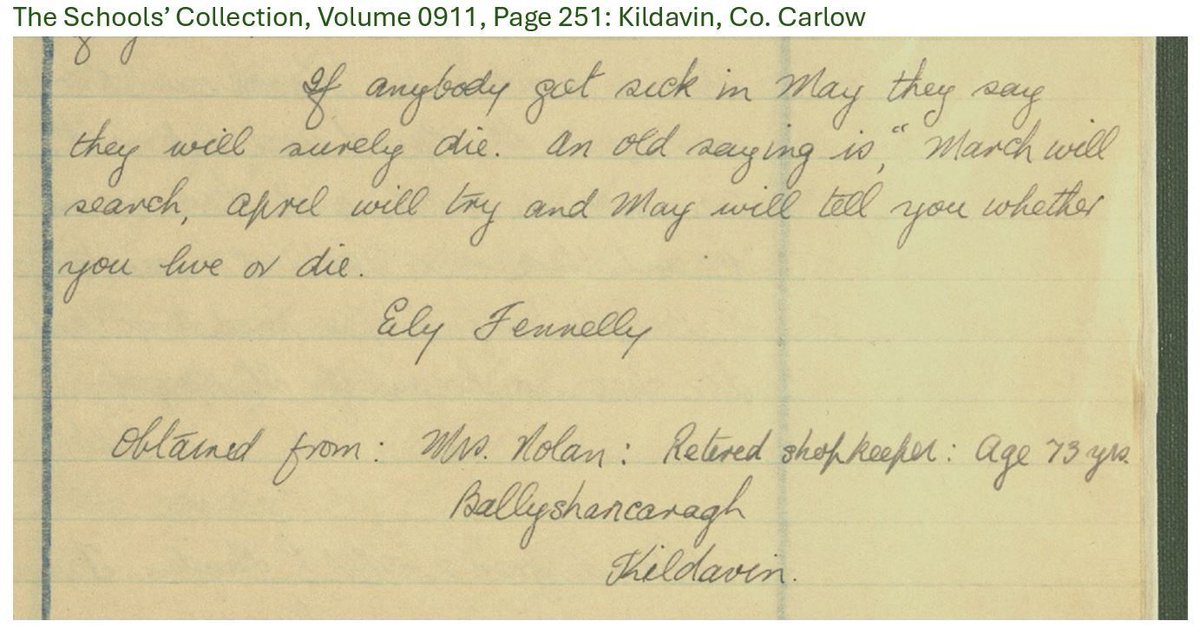 The Schools’ Collection, Volume 0911, Page 251: Kildavin, Co. Carlow
If anybody got sick in May they say
they will surely die. An old saying is, “March will
search, April will try and May will tell you whether
you live or die.
Ely Fennelly
Obtained from: Mrs. Nolan: Retired shopkeeper: Age 73 yrs.
Ballyshancaragh
Kildavin.